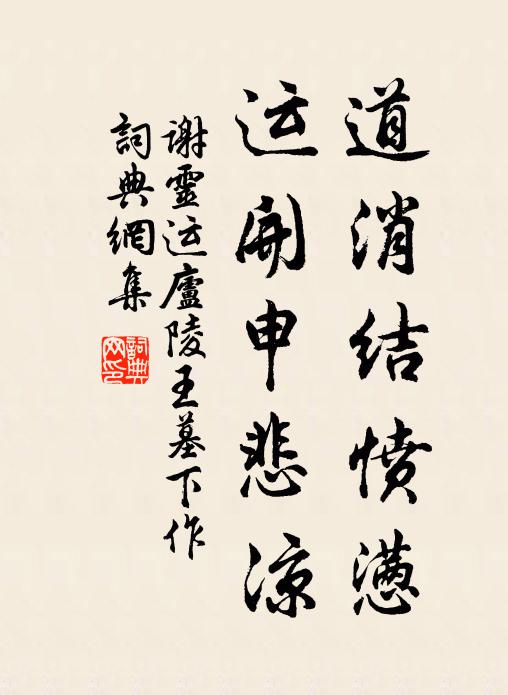 道消结愤懑
运开申悲凉
謝靈运廬陵王墓下作
詞典網集
詞典
网印